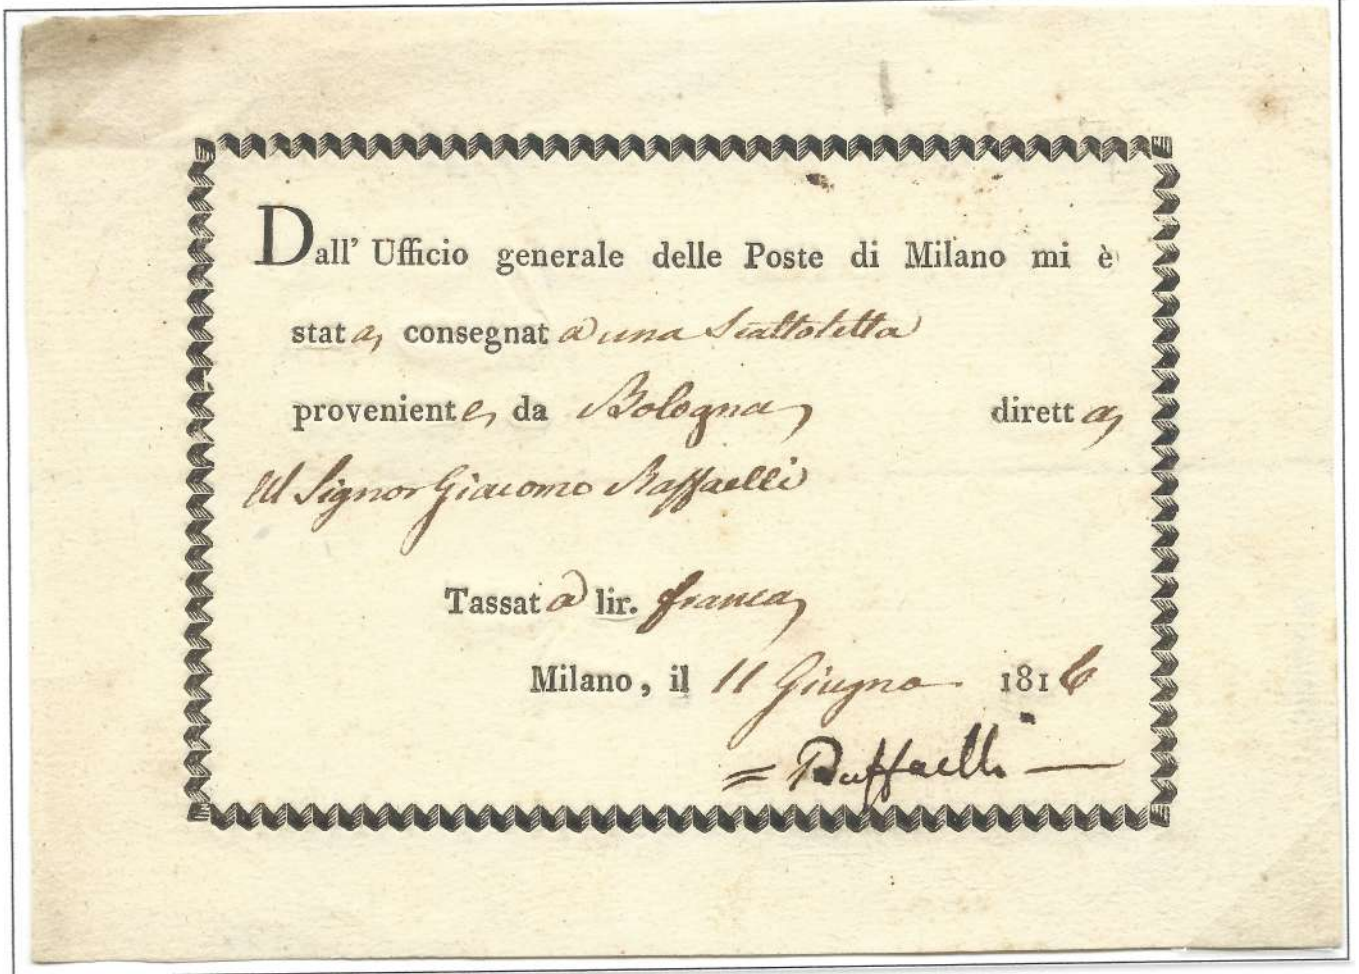 Dall' Ufficio generale delle Poste di Milano mi è
stata consegnata una Scattoletta
proveniente da Bologna diretta
Al Signor Giacomo Raffaelli
Tassata lir. franca
Milano, il 11 Giugno 1816
= Raffaelli —